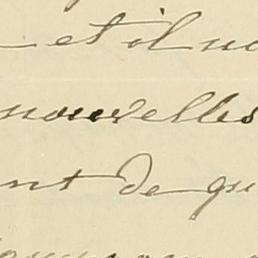 et il no
nouvelles
nt de qu